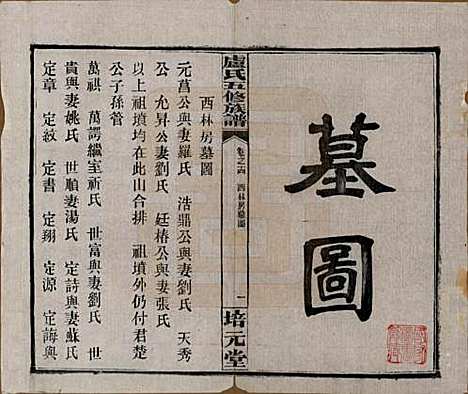 墓圖
盧氏五修族譜
卷之十四 西林房墓圖 一
培元堂
西林房墓圖
元菖公與妻羅氏 浩鼎公與妻劉氏 天秀
公 允昇公妻劉氏 廷椿公與妻張氏
以上祖墳均在此山合排 祖墳外仍付君楚
公子孫管
萬祺 萬諤繼室祈氏 世富與妻劉氏 世
貴與妻姚氏 世順妻湯氏 定詩與妻蘇氏
定章 定紋 定書 定翔 定源 定誨與